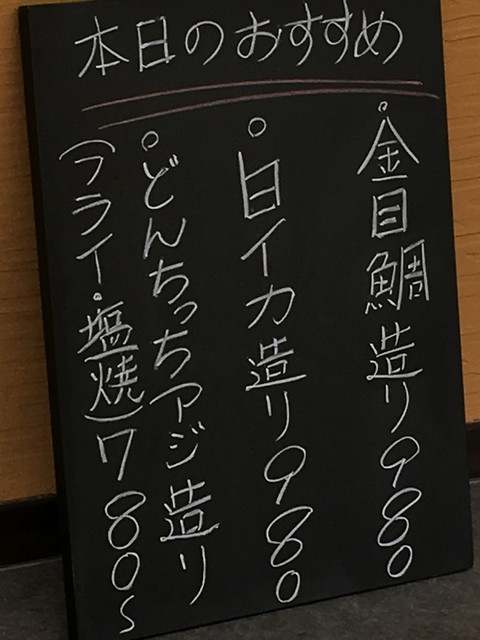 本日のおすすめ
。金目鯛造り980
。白イカ造り980
。どんちっちアジ造り
(フライ・塩焼)780〜